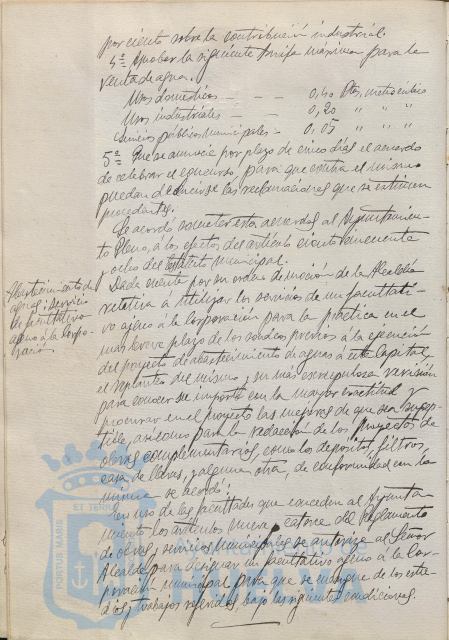 por ciento sobre la contribución industrial.
4º Aprobar la siguiente tarifa máxima para la
venta de agua.
Usos domésticos — — — 0,40 Ptas. metro cúbico
Usos industriales — — — 0,20 " " "
Servicios públicos municipales — 0,05 " " "
5º Que se anuncie por plazo de cinco días el acuerdo
de celebrar el concurso, para que contra el mismo
puedan deducirse las reclamaciones que se estimen
procedentes.
Se acordó someter este acuerdo al Ayuntamien-
to Pleno, á los efectos del artículo ciento cincuenta
y ocho del Estatuto municipal.
Abastecimiento de
aguas; servicio
de facultativo
ageno á la Corpo-
ración
Dada cuenta por su orden de moción de la Alcaldía
relativa á utilizar los servicios de un facultati-
vo ageno á la Corporación para la práctica en el
más breve plazo de los sondeos previos á la ejecución
del proyecto de abastecimiento de aguas á esta Capital,
el replanteo del mismo, su más escrupulosa revisión
para conocer su importe con la mayor exactitud y
procurar en el proyecto las mejoras de que sea suscep-
tible, asi como para la redacción de los proyectos de
obras complementarias, como los depósitos, filtros,
casa de llaves, y alguna otra, de conformidad con la
misma se acordó:
En uso de las facultades que conceden al Ayunta-
miento los artículos nueve y catorce del Reglamento
de obras y servicios municipales se autorize al Señor
Alcalde para designar un facultativo ageno á la Cor-
poración municipal para que se encargue de los estu-
dios y trabajos referidos bajo las siguientes condiciones.
PORTUS MARIS
ET TERRAE